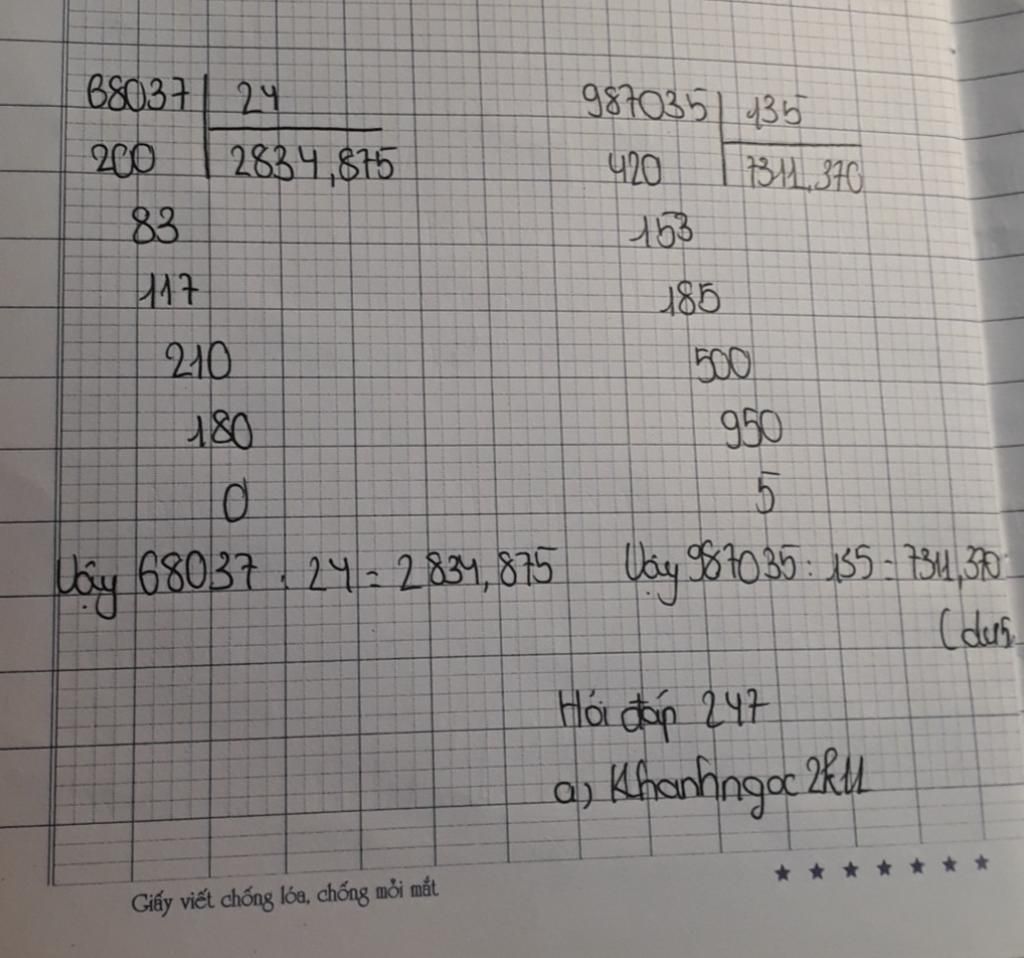 68037 24
200 2834,875
83
117
210
180
0
Vậy 68037 : 24 = 2834,875
987035 135
420 7311,370
153
185
500
950
5
Vậy 987035 : 135 = 7311,370
(dư 5
Hỏi đáp 247
a) Khanhngoc2k11
Giấy viết chống lóa, chống mỏi mắt